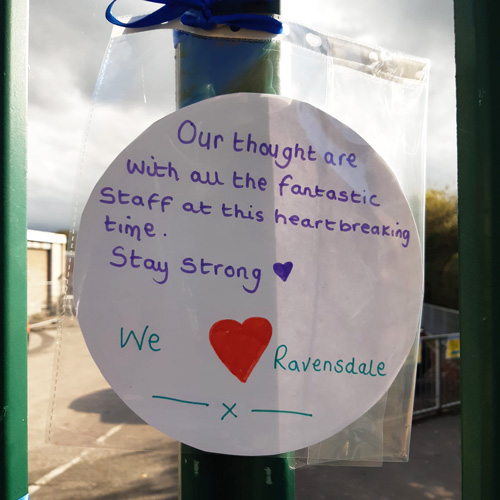 Our thought are
with all the fantastic
Staff at this heartbreaking
time.
Stay Strong
We
Ravensdale
x